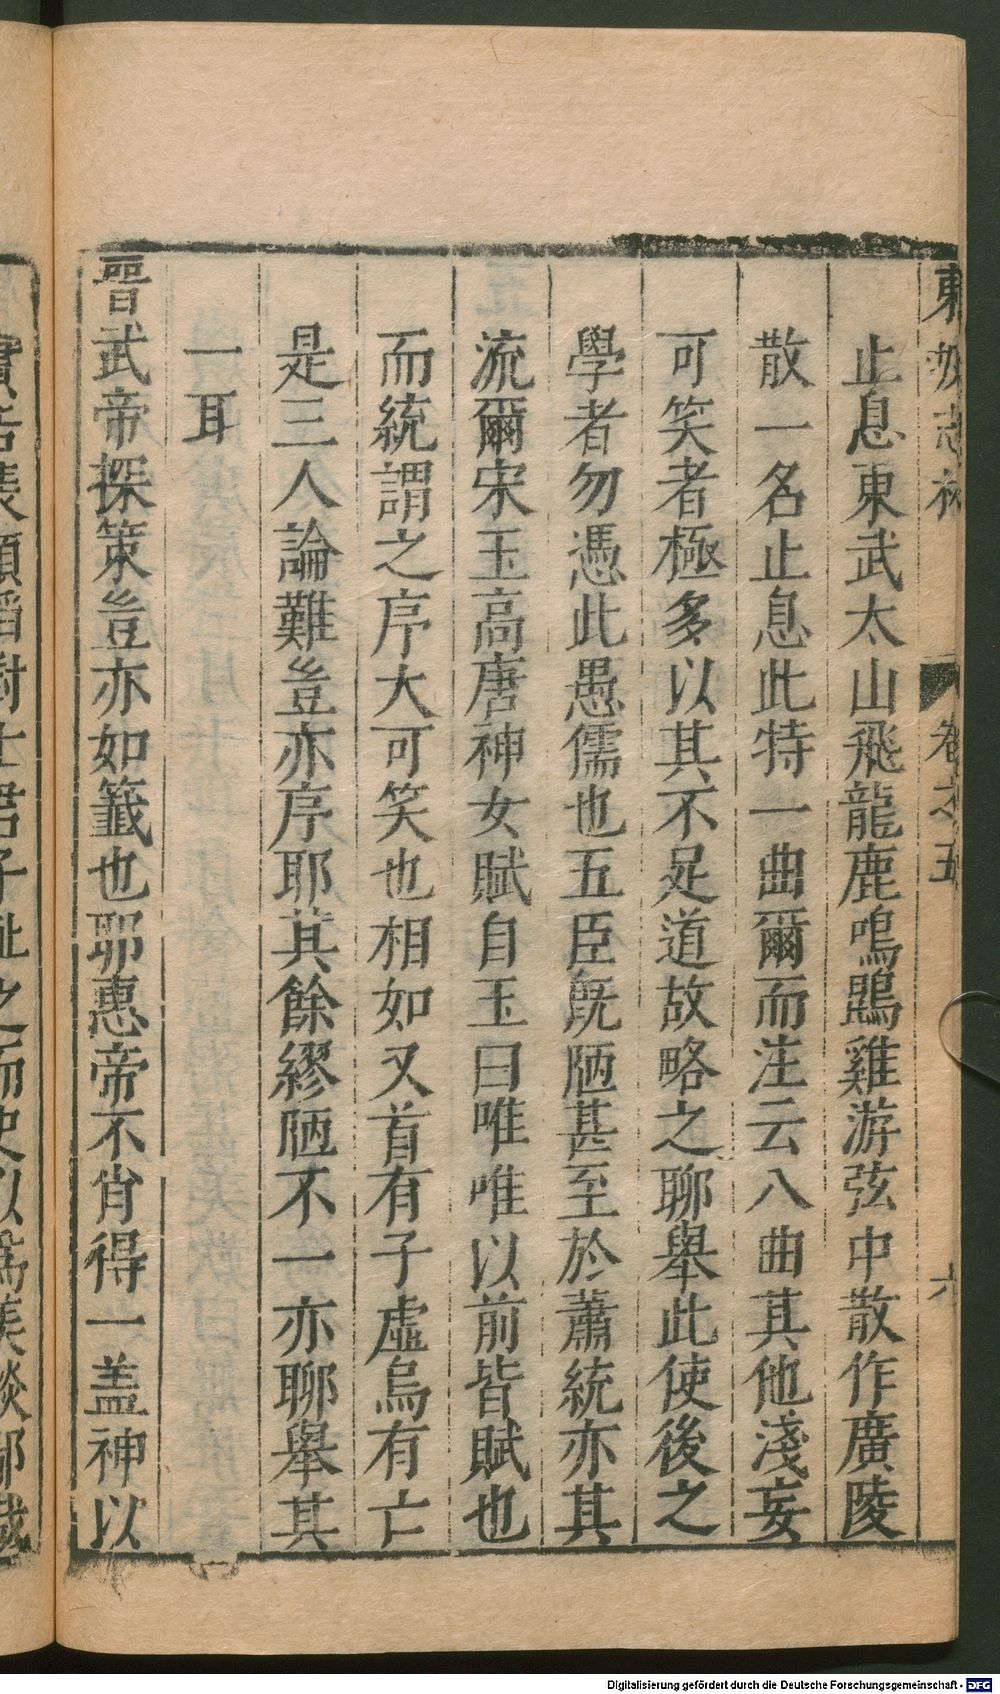 東坡志林
卷之五
六
止息東武太山飛龍鹿鳴鵾雞游弦中散作廣陵
散一名止息此特一曲爾而注云八曲其他淺妄
可笑者極多以其不足道故略之聊舉此使後之
學者勿憑此愚儒也五臣旣陋甚至於蕭統亦其
流爾宋玉高唐神女賦自玉曰唯唯以前皆賦也
而統謂之序大可笑也相如又首有子虛烏有亡
是三人論難豈亦序耶其餘繆陋不一亦聊舉其
一耳
晋武帝探策豈亦如籤也耶惠帝不肖得一盖神以
Digitalisierung gefördert durch die Deutsche Forschungsgemeinschaft - DFG